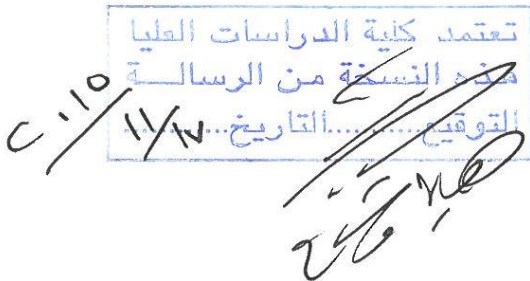 تعتمد كلية الدراسات العليا
هذه النسخة من الرسالــة
التوقيع..........التاريخ..........
٢٠١٥/١١/١٧